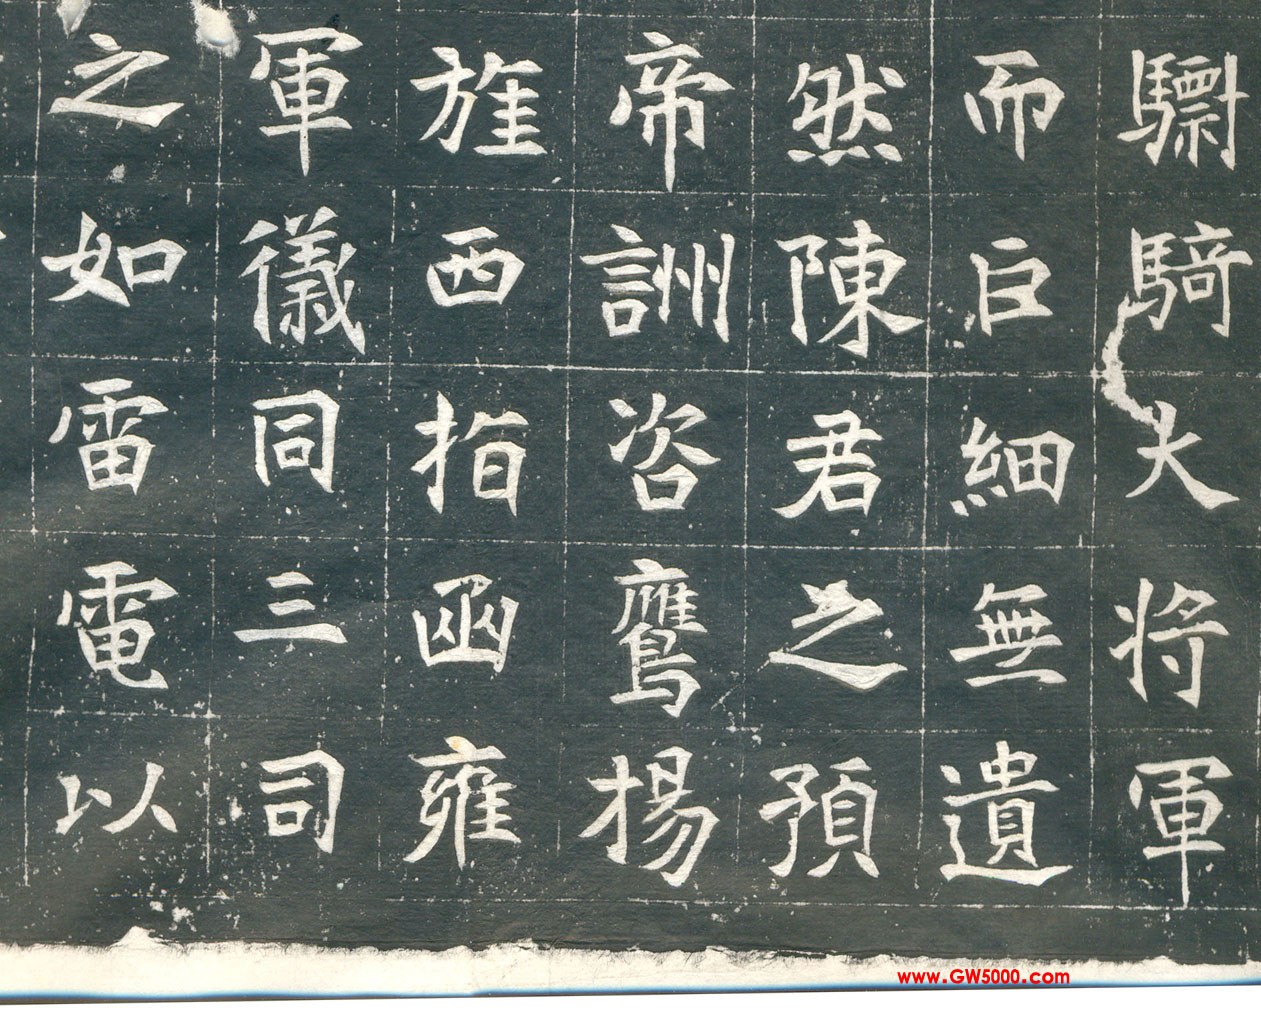 驃騎大将軍
而巨細無遺
然陳君之預
帝詶咨鷹揚
旌西指函雍
軍儀同三司
之如雷電以
www.GW5000.com